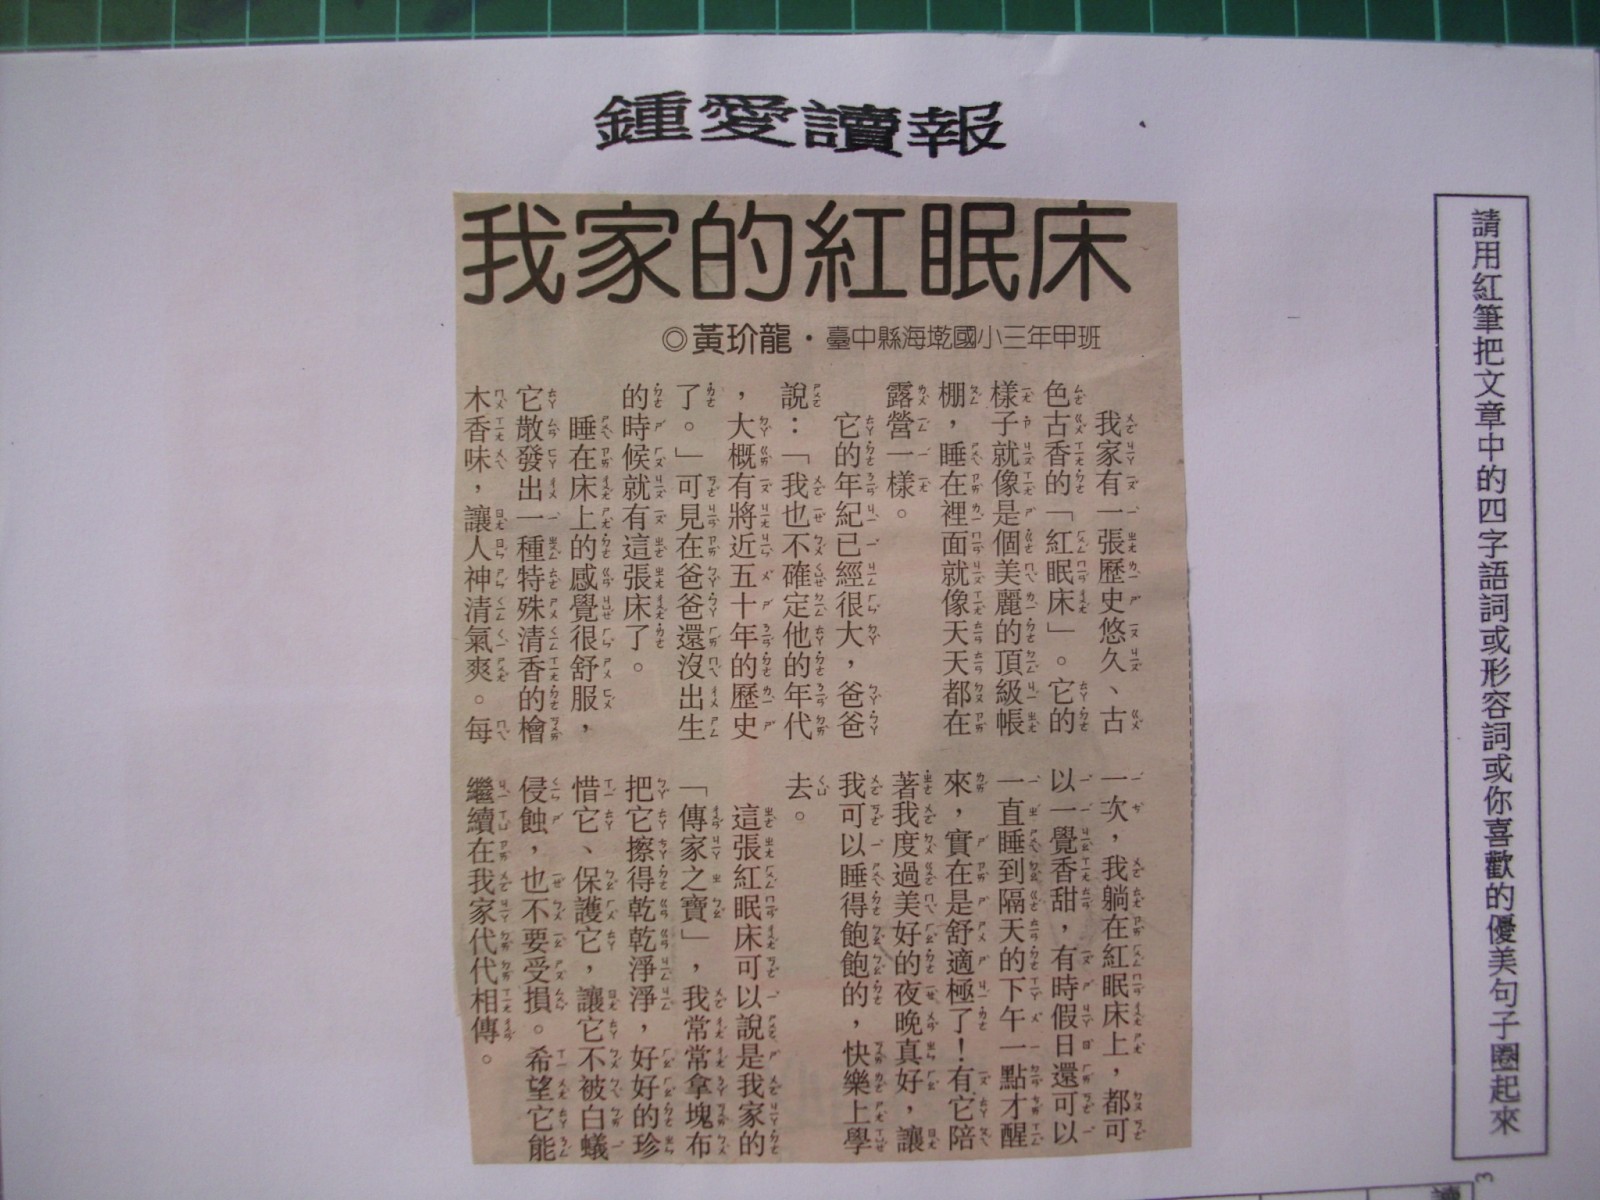 鍾愛讀報
我家的紅眠床
◎黃玠龍・臺中縣海墘國小三年甲班
我家有一張歷史悠久、古
色古香的「紅眠床」。它的
樣子就像是個美麗的頂級帳
棚，睡在裡面就像天天都在
露營一樣。
它的年紀已經很大，爸爸
說：「我也不確定他的年代
，大概有將近五十年的歷史
了。」可見在爸爸還沒出生
的時候就有這張床了。
睡在床上的感覺很舒服，
它散發出一種特殊清香的檜
木香味，讓人神清氣爽。每
一次，我躺在紅眠床上，都可
以一覺香甜，有時假日還可以
一直睡到隔天的下午一點才醒
來，實在是舒適極了！有它陪
著我度過美好的夜晚真好，讓
我可以睡得飽飽的，快樂上學
去。
這張紅眠床可以說是我家的
「傳家之寶」，我常常拿塊布
把它擦得乾乾淨淨，好好的珍
惜它、保護它，讓它不被白蟻
侵蝕，也不要受損。希望它能
繼續在我家代代相傳。
請用紅筆把文章中的四字語詞或形容詞或你喜歡的優美句子圈起來
3